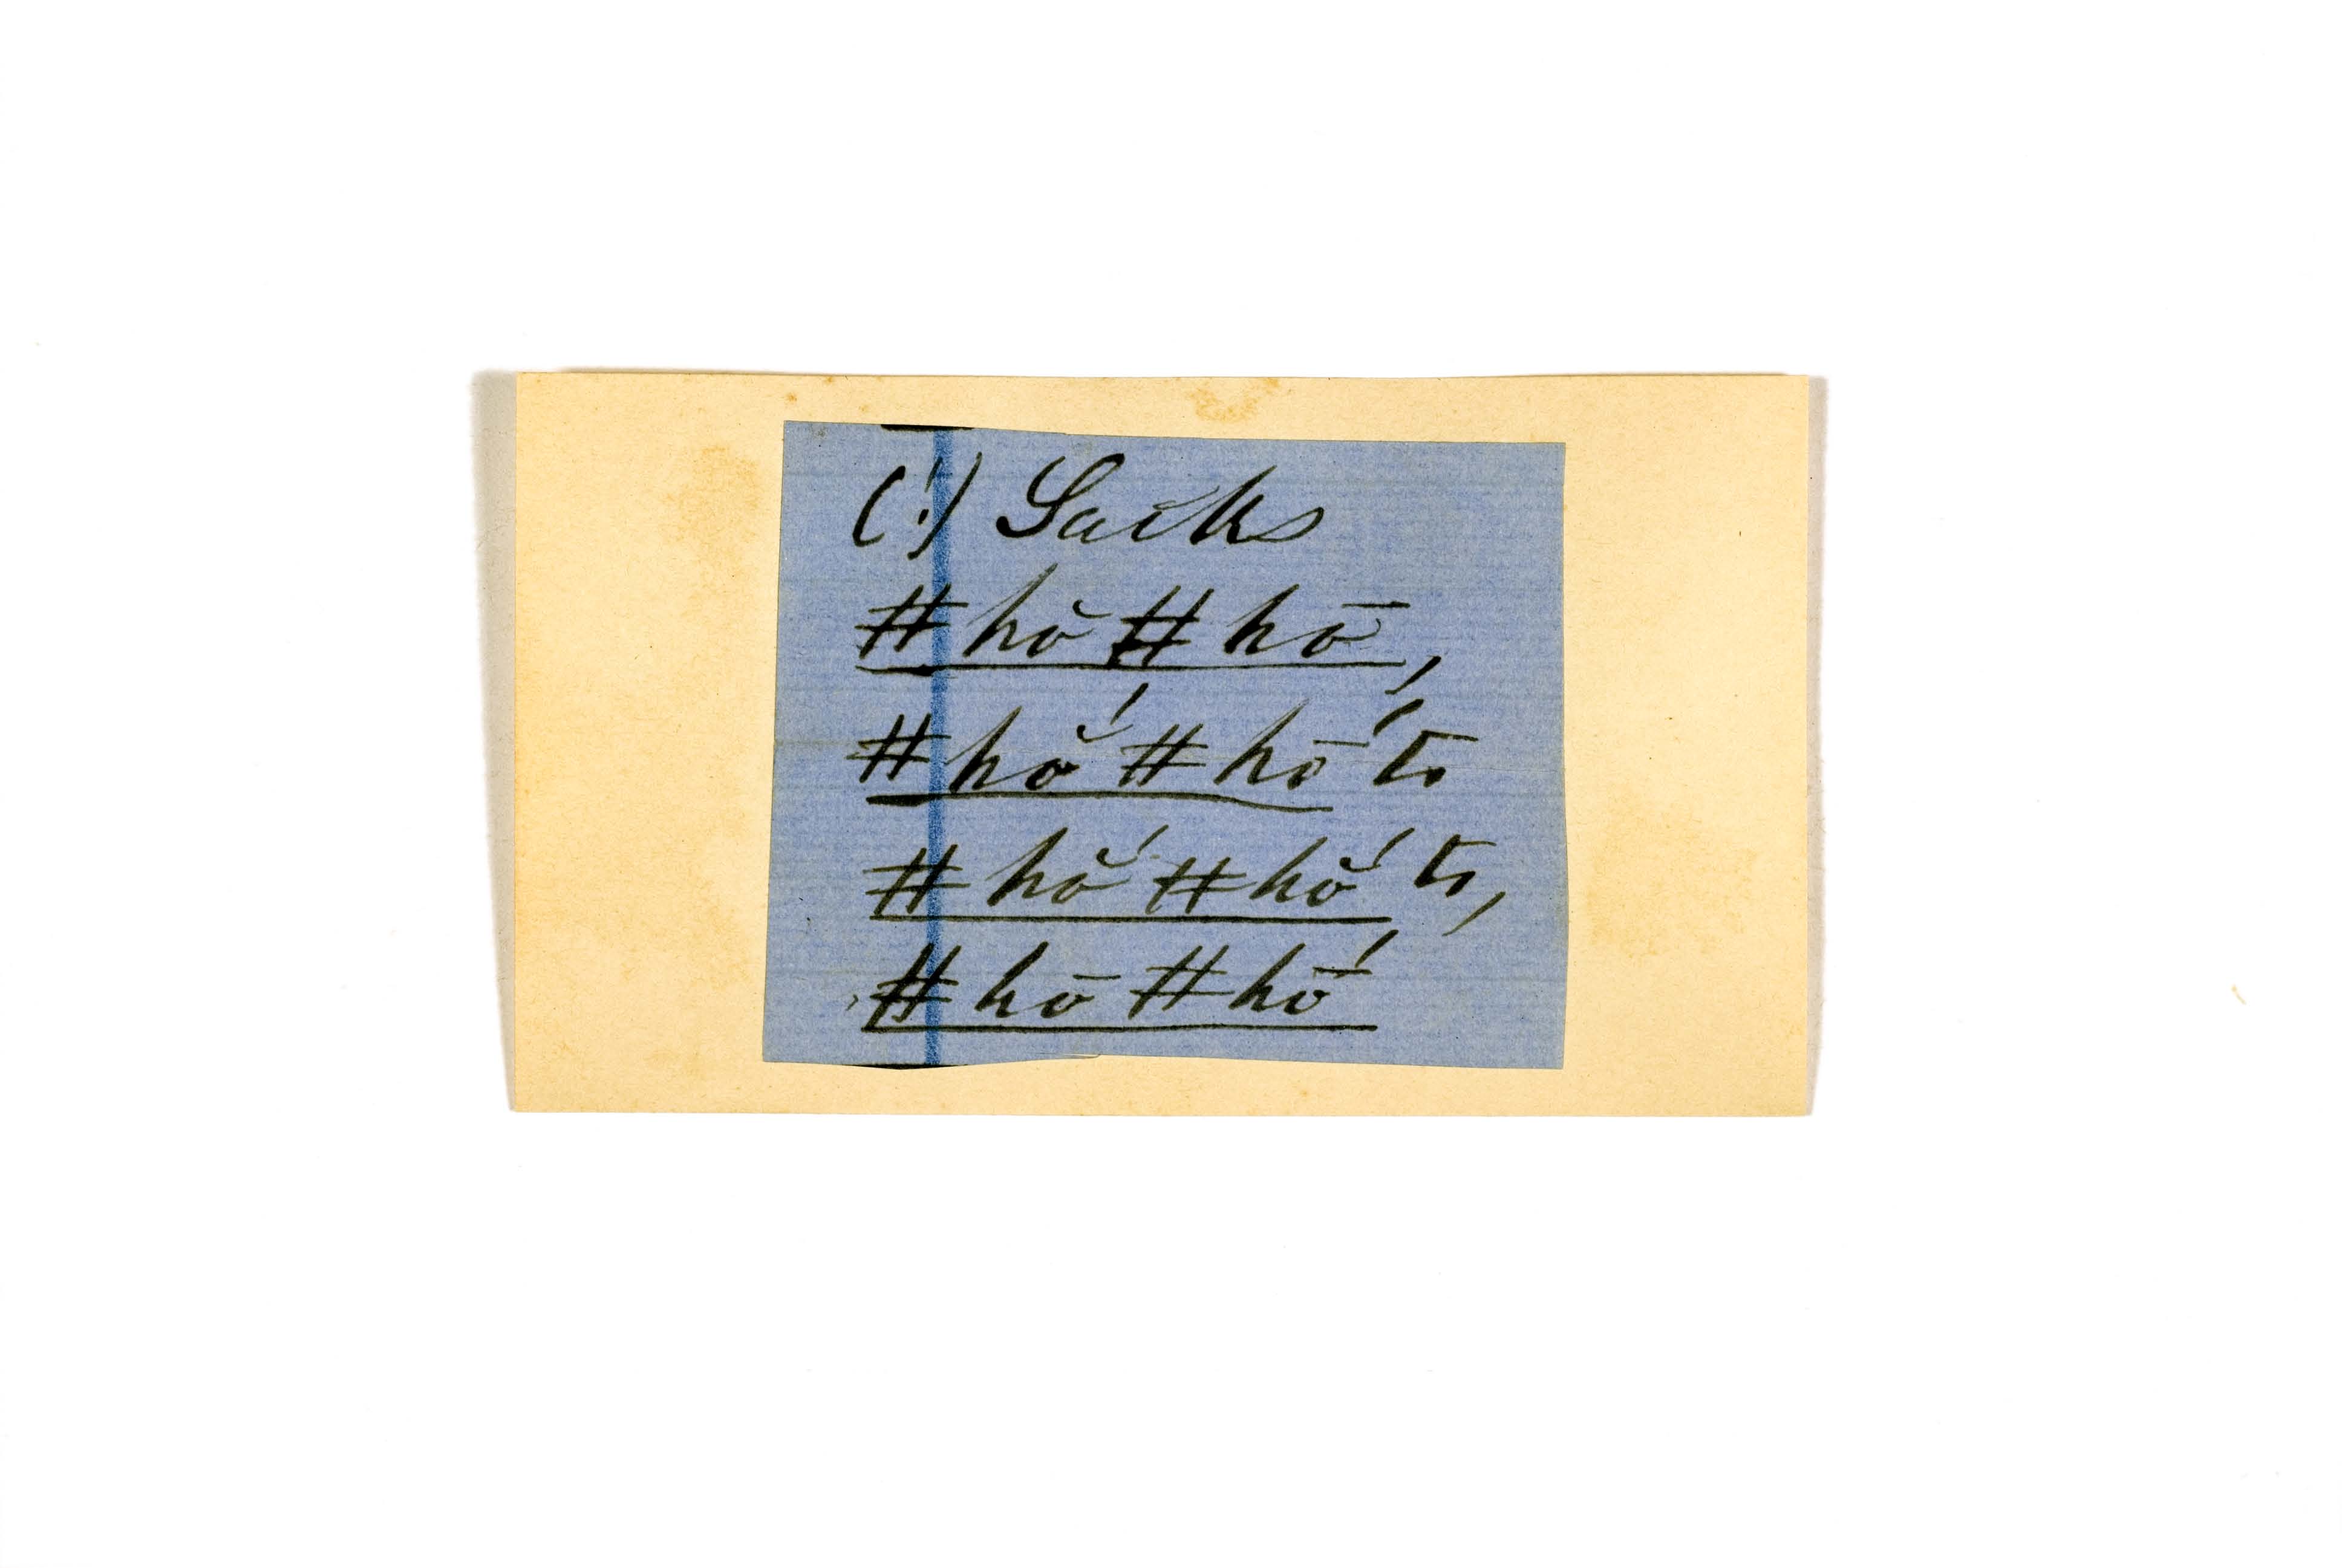 (!) Sacks
# hŏ # hō,
# hŏ' # hō' to
# hŏ' # hŏ' to,
# hō # hō'